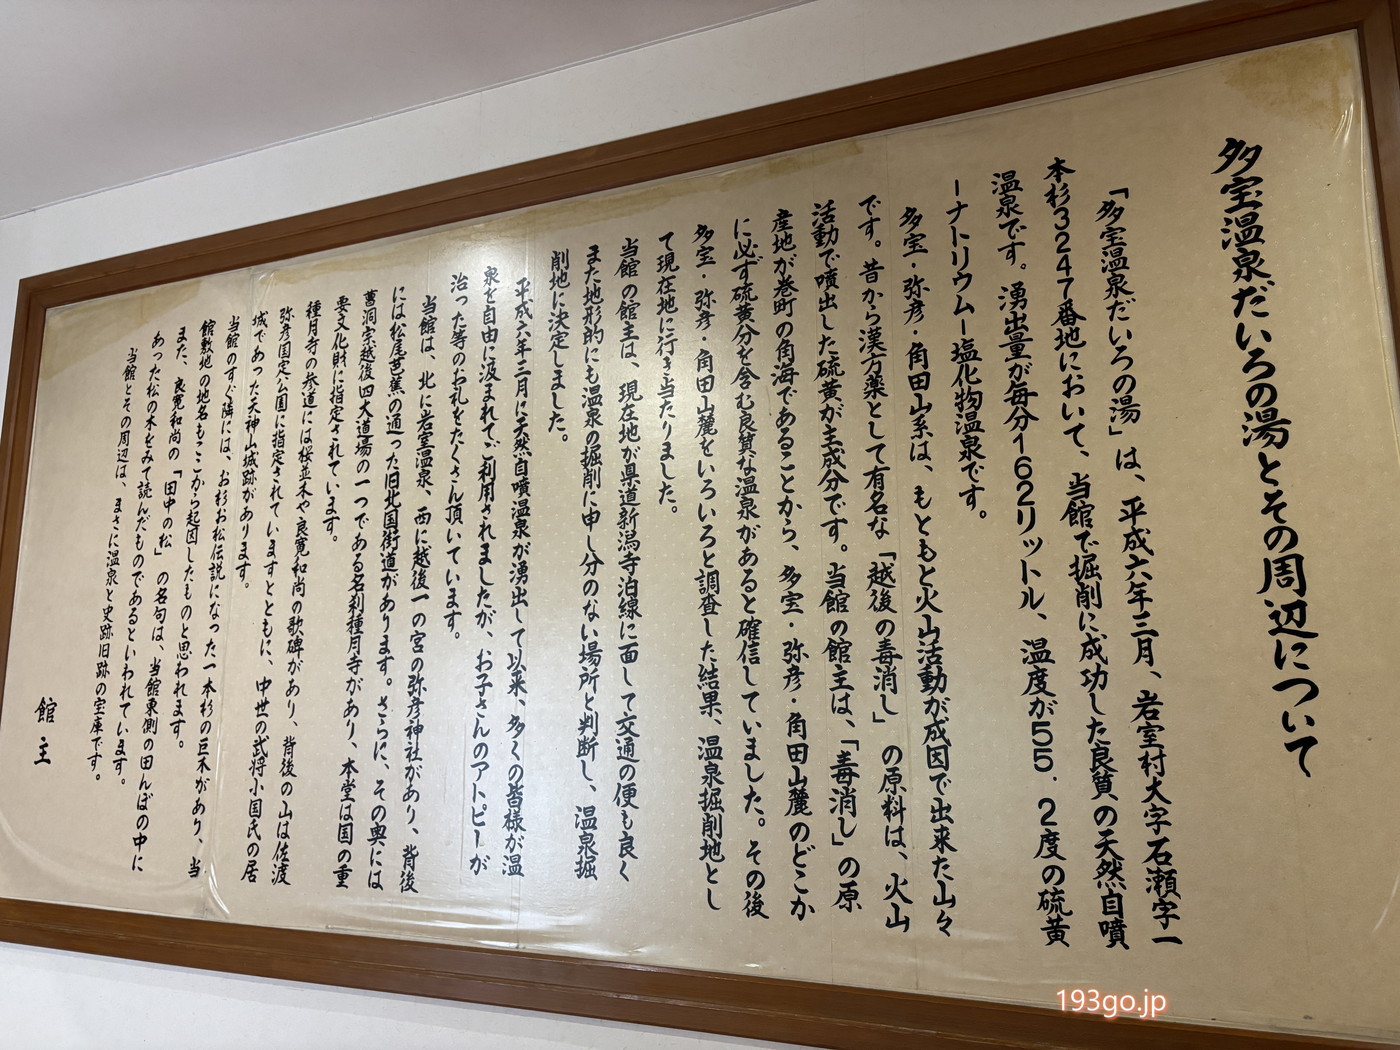 多宝温泉だいろの湯とその周辺について
「多宝温泉だいろの湯」は、平成六年三月、岩室村大字石瀬字一
本杉3247番地において、当館で掘削に成功した良質の天然自噴
温泉です。湧出量が毎分162リットル、温度が55.2度の硫黄
ーナトリウムー塩化物温泉です。
多宝・弥彦・角田山系は、もともと火山活動が成因で出来た山々
です。昔から漢方薬として有名な「越後の毒消し」の原料は、火山
活動で噴出した硫黄が主成分です。当館の館主は、「毒消し」の原
産地が巻町の角海であることから、多宝・弥彦・角田山麓のどこか
に必ず硫黄分を含む良質な温泉があると確信していました。その後
多宝・弥彦・角田山麓をいろいろと調査した結果、温泉掘削地とし
て現在地に行き当たりました。
当館の館主は、現在地が県道新潟寺泊線に面して交通の便も良く
また地形的にも温泉の掘削に申し分のない場所と判断し、温泉掘
削地に決定しました。
平成六年三月に天然自噴温泉が湧出して以来、多くの皆様が温
泉を自由に汲まれてご利用されましたが、お子さんのアトピーが
治った等のお礼をたくさん頂いています。
当館は、北に岩室温泉、西に越後一の宮の弥彦神社があり、背後
には松尾芭蕉の通った旧北国街道があります。さらに、その奥には
曹洞宗越後四大道場の一つである名刹種月寺があり、本堂は国の重
要文化財に指定されています。
種月寺の参道には桜並木や良寛和尚の歌碑があり、背後の山は佐渡
弥彦国定公園に指定されていますとともに、中世の武将小国氏の居
城であった天神山城跡があります。
当館のすぐ隣には、お杉お松伝説になった一本杉の巨木があり、当
館敷地の地名もここから起因したものと思われます。
また、良寛和尚の「田中の松」の名句は、当館東側の田んぼの中に
あった松の木をみて読んだものであるといわれています。
当館とその周辺は、まさに温泉と史跡旧跡の宝庫です。
館主
193go.jp